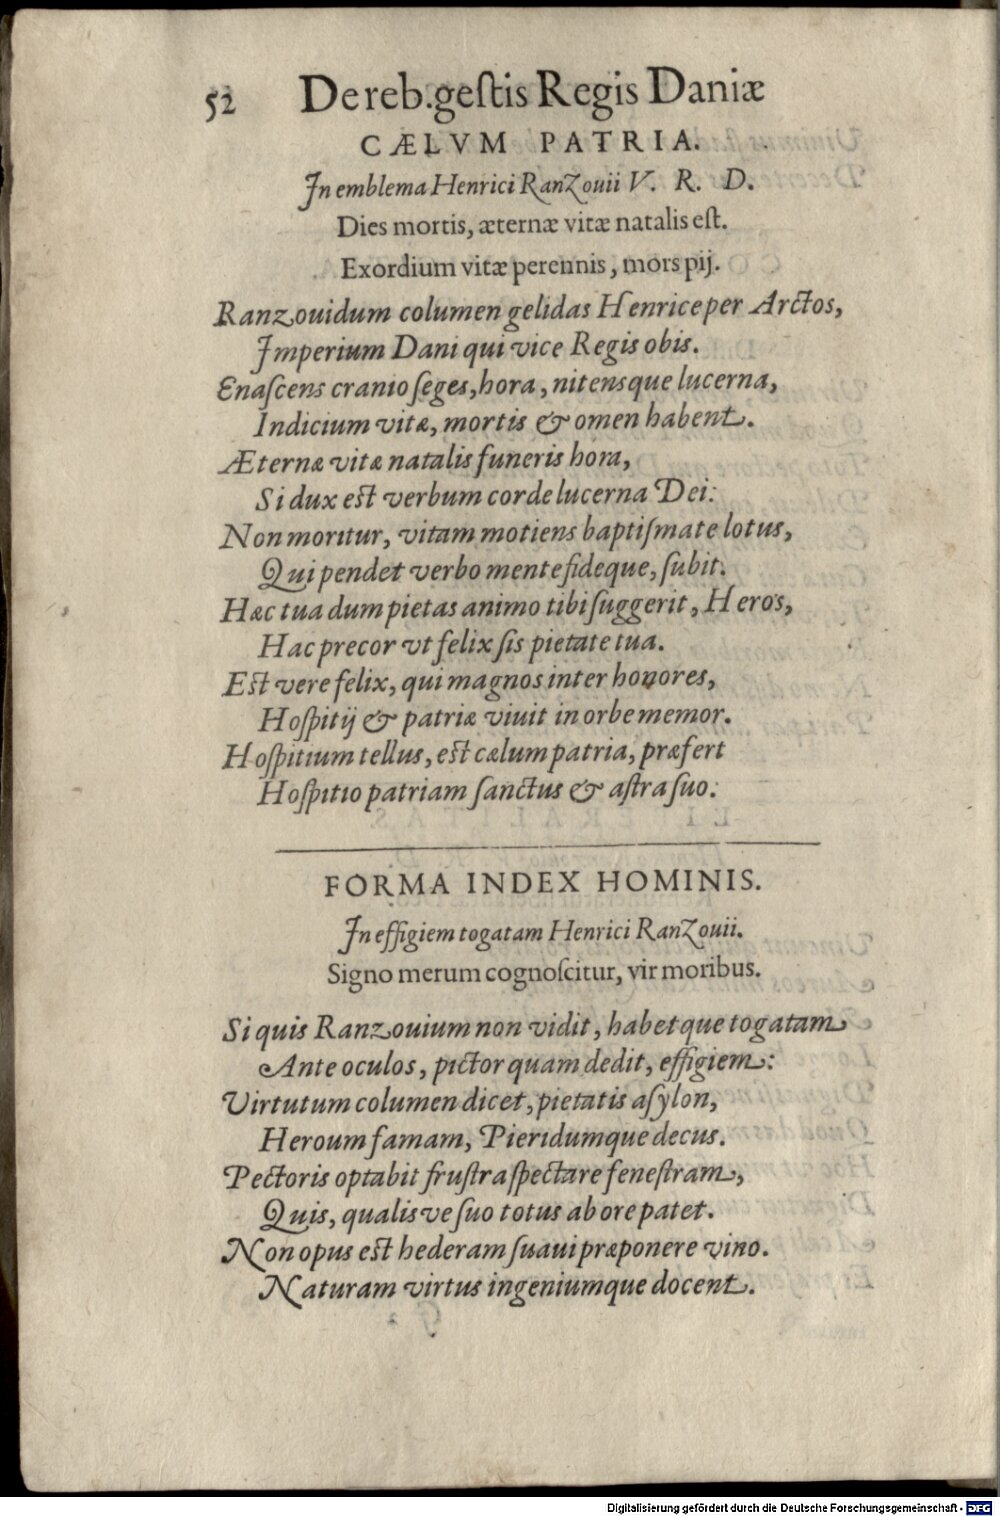 52 De reb. gestis Regis Daniæ
CÆLVM PATRIA.
In emblema Henrici Ranzouii V. R. D.
Dies mortis, æternæ vitæ natalis est.
Exordium vitæ perennis, mors pij.
Ranzouidum columen gelidas Henrice per Arctos,
Imperium Dani qui vice Regis obis.
Enascens cranio seges, hora, nitensque lucerna,
Indicium vitæ, mortis & omen habent.
Æternæ vitæ natalis funeris hora,
Si dux est verbum corde lucerna Dei:
Non moritur, vitam motiens baptismate lotus,
Qui pendet verbo mente fideque, subit.
Hæc tua dum pietas animo tibi suggerit, Heros,
Hac precor vt felix sis pietate tua.
Est vere felix, qui magnos inter honores,
Hospitij & patriæ viuit in orbe memor.
Hospitium tellus, est cælum patria, præfert
Hospitio patriam sanctus & astra suo.
FORMA INDEX HOMINIS.
In effigiem togatam Henrici Ranzouii.
Signo merum cognoscitur, vir moribus.
Si quis Ranzouium non vidit, habetque togatam
Ante oculos, pictor quam dedit, effigiem:
Virtutum columen dicet, pietatis asylon,
Heroum famam, Pieridumque decus.
Pectoris optabit frustra spectare fenestram,
Quis, qualisve suo totus ab ore patet.
Non opus est hederam suaui præponere vino.
Naturam virtus ingeniumque docent.
Digitalisierung gefördert durch die Deutsche Forschungsgemeinschaft - DFG